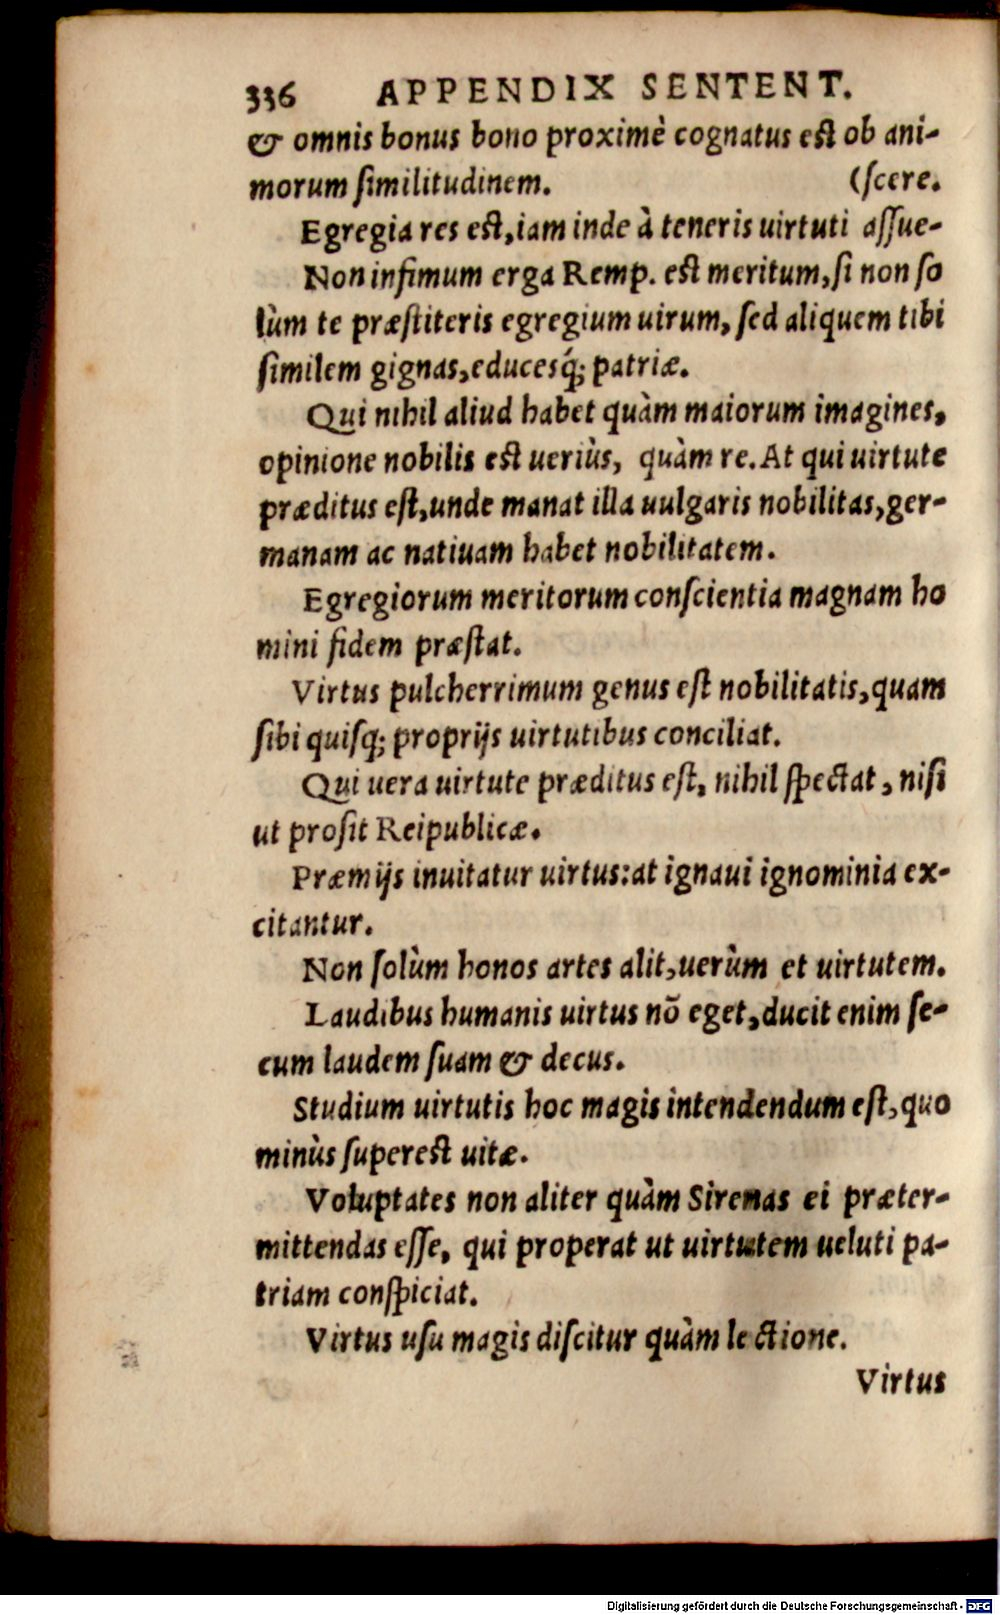 336 APPENDIX SENTENT.
& omnis bonus bono proximè cognatus est ob ani-
morum ſimilitudinem. (ſcere.
Egregia res eſt, iam inde à teneris uirtuti aſſue-
Non infimum erga Remp. est meritum, ſi non ſo
lùm te præſtiteris egregium uirum, ſed aliquem tibi
ſimilem gignas, educesq́; patriæ.
Qui nihil aliud habet quàm maiorum imagines,
opinione nobilis est ueriùs, quàm re. At qui uirtute
præditus eſt, unde manat illa uulgaris nobilitas, ger-
manam ac natiuam habet nobilitatem.
Egregiorum meritorum conſcientia magnam ho
mini fidem præſtat.
Virtus pulcherrimum genus eſt nobilitatis, quam
ſibi quiſq; proprijs uirtutibus conciliat.
Qui uera uirtute præditus eſt, nihil ſpectat, niſi
ut proſit Reipublicæ.
Præmijs inuitatur uirtus: at ignaui ignominia ex-
citantur.
Non ſolùm honos artes alit, uerùm et uirtutem.
Laudibus humanis uirtus nō eget, ducit enim ſe-
cum laudem ſuam & decus.
Studium uirtutis hoc magis intendendum eſt, quo
minùs ſuperest uitæ.
Voluptates non aliter quàm Sirenas ei præter-
mittendas eſſe, qui properat ut uirtutem ueluti pa-
triam conſpiciat.
Virtus uſu magis diſcitur quàm lectione.
Virtus
Digitalisierung gefördert durch die Deutsche Forschungsgemeinschaft - DFG